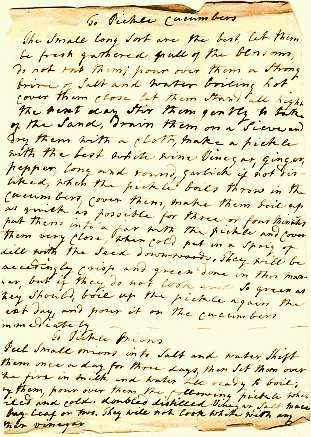 To Pickle Cucumbers
The Small long Sort are the best, let them
be fresh gathered, pull of the blossoms,
do not rub them; pour over them a Strong
brine of Salt and water boiling hot
cover them close let them Stand all night
the next day Stir them gently to take
of the Sand, Drain them on a Sieve and
Dry them with a cloth, make a pickle
with the best white wine Vinegar, ginger,
pepper, long and round, garlick if not dis-
liked, when the pickle boils throw in the
Cucumbers, cover them, make them boil up
as quick as possible for three or four Minutes
put them into a jar with the pickle and cover
them very close, when cold put in a Sprig of
dill with the Seed downwards; they will be
exceedingly crisp and green done in this man-
ner, but if they do not look quite So green as
they Should, boil up the pickle again the
next day, and pour it on the cucumbers
immediately
To Pickle Onions
Peel Small onions into Salt and water, Shift
them once a day for three days, then Set them over
the fire in milk and water till ready to boil,
dry them, pour over them the following pickle when
boiled and cold. doubled distilled Vinegar, Salt, mace
bay leaf or two, they will not look white with any
other vinegar